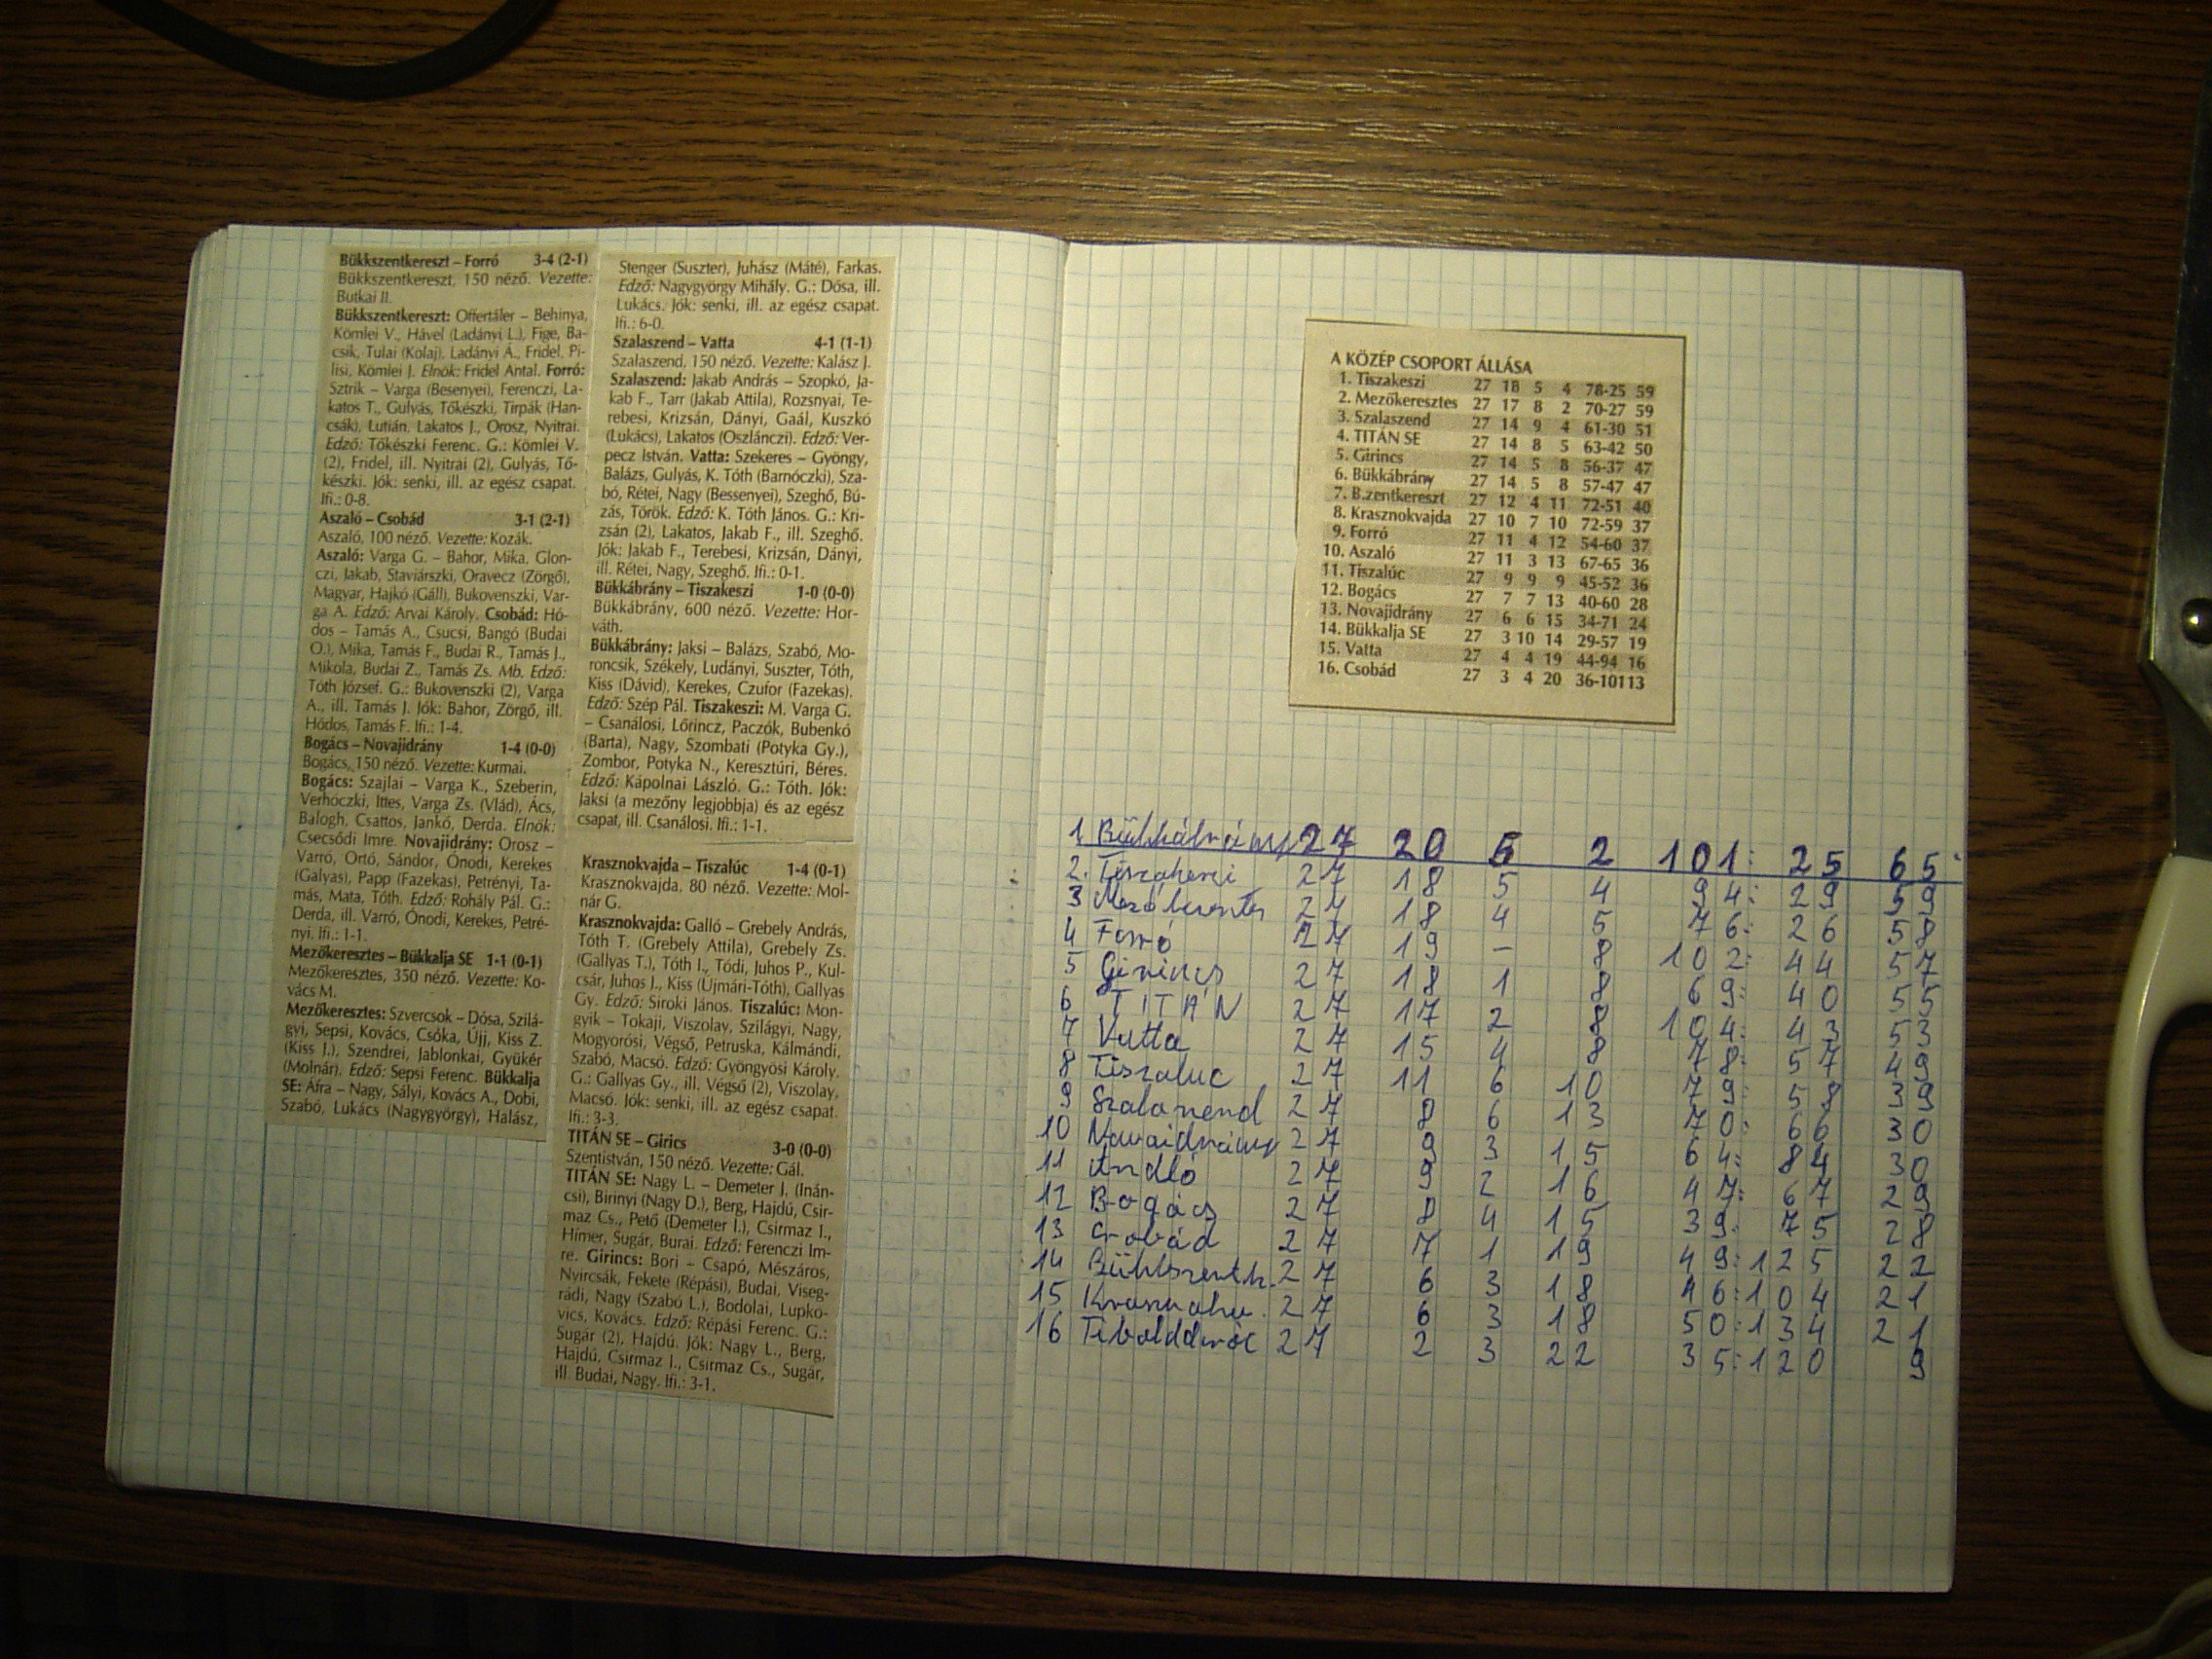 Bükkszentkereszt – Forró 3-4 (2-1)
Bükkszentkereszt, 150 néző. Vezette:
Butkai II.
Bükkszentkereszt: Offertáler – Behinya,
Kömlei V., Hável (Ladányi L.), Fige, Ba-
csik, Tulai (Kolaj), Ladányi Á., Fridel, Pi-
lisi, Kömlei J. Elnök: Fridel Antal. Forró:
Sztrik – Varga (Besenyei), Ferenczi, La-
katos T., Gulyás, Tőkészki, Tirpák (Han-
csák), Lutián, Lakatos J., Orosz, Nyitrai.
Edző: Tőkészki Ferenc. G.: Kömlei V.
(2), Fridel, ill. Nyitrai (2), Gulyás, Tő-
készki. Jók: senki, ill. az egész csapat.
Ifi.: 0-8.
Aszaló – Csobád 3-1 (2-1)
Aszaló, 100 néző. Vezette: Kozák.
Aszaló: Varga G. – Bahor, Mika, Glon-
czi, Jakab, Staviárszki, Oravecz (Zörgő),
Magyar, Hajkó (Gáll), Bukovenszki, Var-
ga A. Edző: Arvai Károly. Csobád: Hó-
dos – Tamás A., Csucsi, Bangó (Budai
O.), Mika, Tamás F., Budai R., Tamás J.,
Mikola, Budai Z., Tamás Zs. Mb. Edző:
Tóth József. G.: Bukovenszki (2), Varga
A., ill. Tamás J. Jók: Bahor, Zörgő, ill.
Hódos, Tamás F. Ifi.: 1-4.
Bogács – Novajidrány 1-4 (0-0)
Bogács, 150 néző. Vezette: Kurmai.
Bogács: Szajlai – Varga K., Szeberin,
Verhóczki, Ittes, Varga Zs. (Vlád), Ács,
Balogh, Csattos, Jankó, Derda. Elnök:
Csecsődi Imre. Novajidrány: Orosz –
Varró, Ortó, Sándor, Ónodi, Kerekes
(Galyas), Papp (Fazekas), Petrényi, Ta-
más, Mata, Tóth. Edző: Rohály Pál. G.:
Derda, ill. Varró, Ónodi, Kerekes, Petré-
nyi. Ifi.: 1-1.
Mezőkeresztes – Bükkalja SE 1-1 (0-1)
Mezőkeresztes, 350 néző. Vezette: Ko-
vács M.
Mezőkeresztes: Szvercsok – Dósa, Szilá-
gyi, Sepsi, Kovács, Csóka, Újj, Kiss Z.
(Kiss J.), Szendrei, Jablonkai, Gyükér
(Molnár). Edző: Sepsi Ferenc. Bükkalja
SE: Áfra – Nagy, Sályi, Kovács A., Dobi,
Szabó, Lukács (Nagygyörgy), Halász,
Stenger (Suszter), Juhász (Máté), Farkas.
Edző: Nagygyörgy Mihály. G.: Dósa, ill.
Lukács. Jók: senki, ill. az egész csapat.
Ifi.: 6-0.
Szalaszend – Vatta 4-1 (1-1)
Szalaszend, 150 néző. Vezette: Kalász J.
Szalaszend: Jakab András – Szopkó, Ja-
kab F., Tarr (Jakab Attila), Rozsnyai, Te-
rebesi, Krizsán, Dányi, Gaál, Kuszkó
(Lukács), Lakatos (Oszlánczi). Edző: Ver-
pecz István. Vatta: Szekeres – Gyöngy,
Balázs, Gulyás, K. Tóth (Barnóczki), Sza-
bó, Rétei, Nagy (Bessenyei), Szeghő, Bú-
zás, Török. Edző: K. Tóth János. G.: Kri-
zsán (2), Lakatos, Jakab F., ill. Szeghő.
Jók: Jakab F., Terebesi, Krizsán, Dányi,
ill. Rétei, Nagy, Szeghő. Ifi.: 0-1.
Bükkábrány – Tiszakeszi 1-0 (0-0)
Bükkábrány, 600 néző. Vezette: Hor-
váth.
Bükkábrány: Jaksi – Balázs, Szabó, Mo-
roncsik, Székely, Ludányi, Suszter, Tóth,
Kiss (Dávid), Kerekes, Czufor (Fazekas).
Edző: Szép Pál. Tiszakeszi: M. Varga G.
– Csanálosi, Lőrincz, Paczók, Bubenkó
(Barta), Nagy, Szombati (Potyka Gy.),
Zombor, Potyka N., Keresztúri, Béres.
Edző: Kápolnai László. G.: Tóth. Jók:
Jaksi (a mezőny legjobbja) és az egész
csapat, ill. Csanálosi. Ifi.: 1-1.
Krasznokvajda – Tiszalúc 1-4 (0-1)
Krasznokvajda, 80 néző. Vezette: Mol-
nár G.
Krasznokvajda: Galló – Grebely András,
Tóth T. (Grebely Attila), Grebely Zs.
(Gallyas T.), Tóth I., Tódi, Juhos P., Kul-
csár, Juhos J., Kiss (Újmári-Tóth), Gallyas
Gy. Edző: Siroki János. Tiszalúc: Mon-
gyik – Tokaji, Viszolay, Szilágyi, Nagy,
Mogyorósi, Végső, Petruska, Kálmándi,
Szabó, Macsó. Edző: Gyöngyösi Károly.
G.: Gallyas Gy., ill. Végső (2), Viszolay,
Macsó. Jók: senki, ill. az egész csapat.
Ifi.: 3-3.
TITÁN SE – Girics 3-0 (0-0)
Szentistván, 150 néző. Vezette: Gál.
TITÁN SE: Nagy L. – Demeter J. (Inán-
csi), Birinyi (Nagy D.), Berg, Hajdú, Csir-
maz Cs., Pető (Demeter I.), Csirmaz I.,
Hímer, Sugár, Burai. Edző: Ferenczi Im-
re. Girincs: Bori – Csapó, Mészáros,
Nyircsák, Fekete (Répási), Budai, Viseg-
rádi, Nagy (Szabó L.), Bodolai, Lupko-
vics, Kovács. Edző: Répási Ferenc. G.:
Sugár (2), Hajdú. Jók: Nagy L., Berg,
Hajdú, Csirmaz I., Csirmaz Cs., Sugár,
ill. Budai, Nagy. Ifi.: 3-1.
A KÖZÉP CSOPORT ÁLLÁSA
1. Tiszakeszi 27 18 5 4 78-25 59
2. Mezőkeresztes 27 17 8 2 70-27 59
3. Szalaszend 27 14 9 4 61-30 51
4. TITÁN SE 27 14 8 5 63-42 50
5. Girincs 27 14 5 8 56-37 47
6. Bükkábrány 27 14 5 8 57-47 47
7. B.zentkereszt 27 12 4 11 72-51 40
8. Krasznokvajda 27 10 7 10 72-59 37
9. Forró 27 11 4 12 54-60 37
10. Aszaló 27 11 3 13 67-65 36
11. Tiszalúc 27 9 9 9 45-52 36
12. Bogács 27 7 7 13 40-60 28
13. Novajidrány 27 6 6 15 34-71 24
14. Bükkalja SE 27 3 10 14 29-57 19
15. Vatta 27 4 4 19 44-94 16
16. Csobád 27 3 4 20 36-10113
1. Bükkábrány 27 20 5 2 101: 25 65
2. Tiszakeszi 27 18 5 4 94: 29 59
3 27 18 4 5 76: 26 58
4 Forró 27 19 – 8 102: 44 57
5 Girincs 27 18 1 8 69: 40 55
6 TITÁN 27 17 2 8 104: 43 53
7 Vatta 27 15 4 8 78: 57 49
8 Tiszaluc 27 11 6 10 79: 58 39
9 Szalaszend 27 8 6 13 70: 66 30
10 27 9 3 15 64: 84 30
11 27 9 2 16 47: 67 29
12 Bogács 27 8 4 15 39: 75 28
13 Csobád 27 7 1 19 49: 125 22
14 Bükkszentk. 27 6 3 18 46: 104 21
15 27 6 3 18 50: 134 21
16 Tibolddaróc 27 2 3 22 35: 120 9